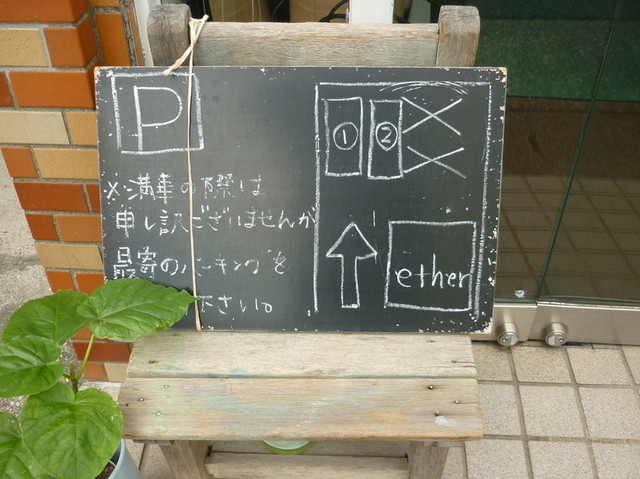 P
① ②
※満車の際は
申し訳ございませんが
最寄のパーキングを
ださい。
ether